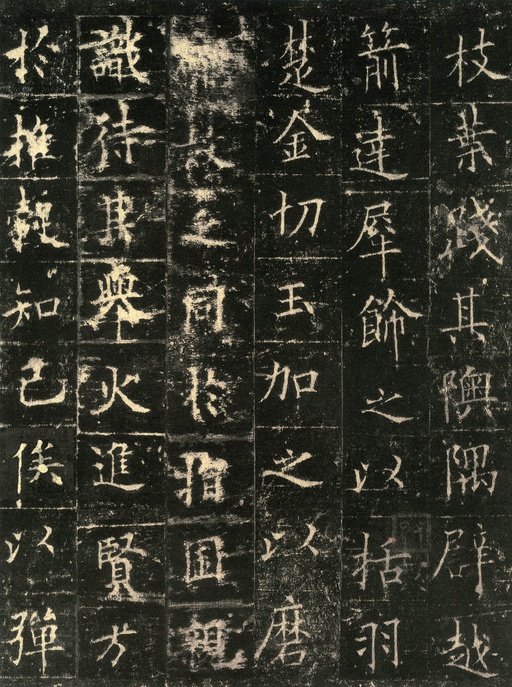 枝葉踐其隩隅辟越
箭達犀飾之以括羽
楚金切玉加之以磨
故之同扵指囷親
識待其舉火進賢方
扵推轂知己俟以彈